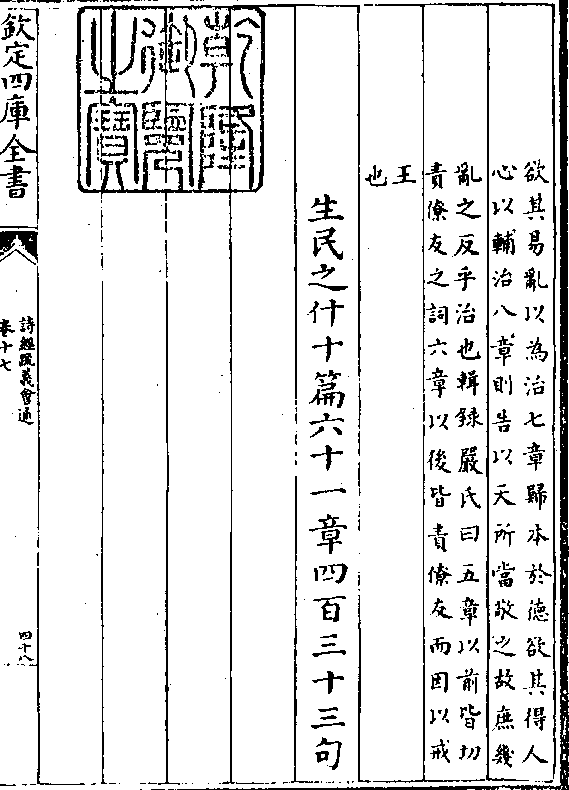 欲其易亂以為治七章歸本於德欲其得人
心以輔治八章則告以天所當敬之故庶幾
亂之反乎治也輯録嚴氏曰五章以前皆切
責僚友之詞六章以後皆責僚友而因以戒
王
也
生民之什十篇六十一章四百三十三句
乾隆
御覽
之寶
欽定四庫全書
詩經疏義會通
卷十七
四十八